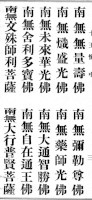 南無無量壽佛
南無熾盛光佛
南無未來華光佛
南無舍利多寶佛
南無文殊師利菩薩
南無彌勒尊佛
南無藥師光佛
南無大通智勝佛
南無自在通王佛
南無大行普賢菩薩